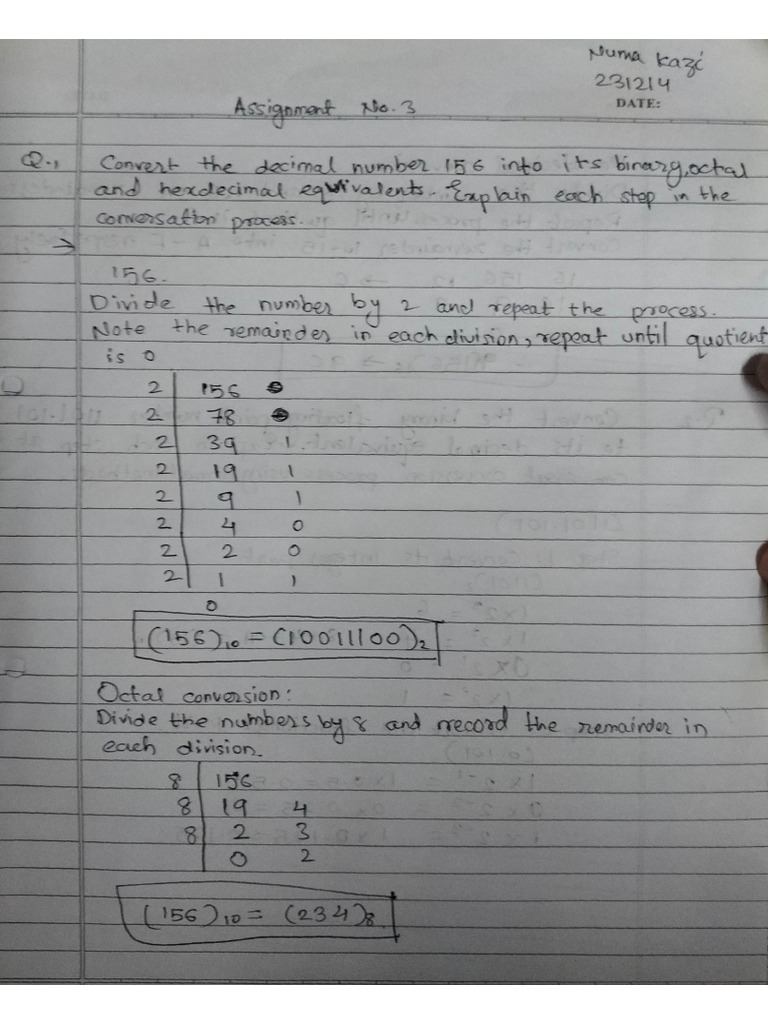 Numa Kazi
231214
DATE:
Assignment No. 3
Q.1 Convert the decimal number 156 into its binary, octal
and hexdecimal equivalents. Explain each step in the
conversation process.
→
156.
Divide the number by 2 and repeat the process.
Note the remainder in each division, repeat until quotient
is 0
2 156 0
2 78 0
2 39 1
2 19 1
2 9 1
2 4 0
2 2 0
2 1 1
0
(156)10 = (10011100)2
Octal conversion:
Divide the numbers by 8 and record the remainder in
each division.
8 156
8 19 4
8 2 3
0 2
(156)10 = (234)8